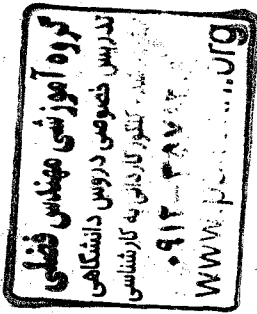 گروه آموزشی مهندس فضلی
تدریس خصوصی دروس دانشگاهی
کنکور کاردانی به کارشناسی
۰۹۱۲
www.p
.org